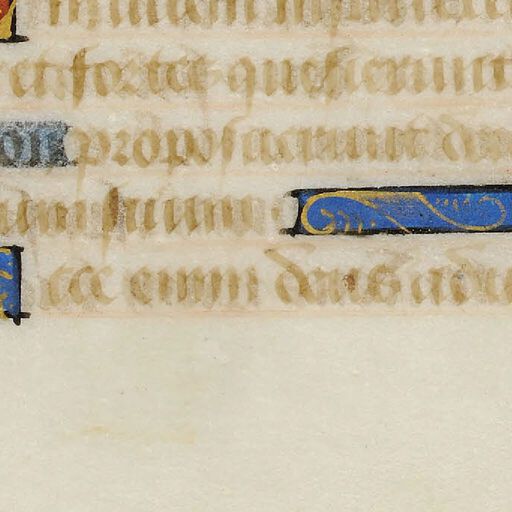 et fortes quesierunt
on proposuerunt deu
suum
cce enim deus adiu